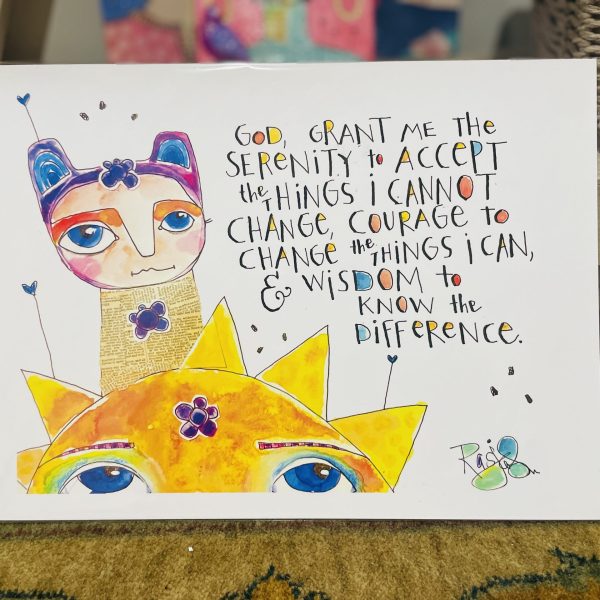 GOD, GRANT ME THE
SERENITY to ACCEPT
the THINGS i CANNOT
CHANGE, COURAGE to
CHANGE the THINGS i CAN,
& WISDOM to
KNOW the
DIFFERENCE.